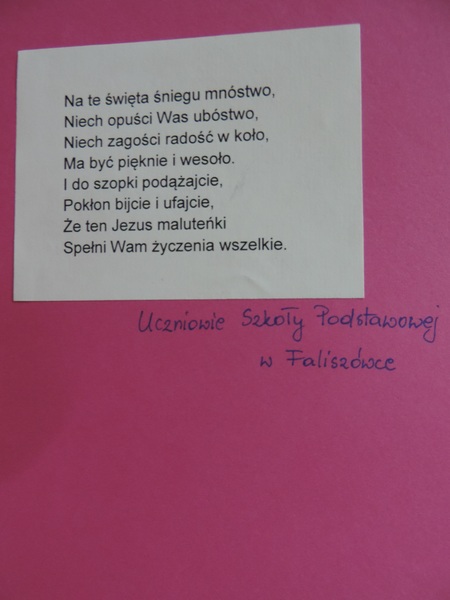 Na te święta śniegu mnóstwo,
Niech opuści Was ubóstwo,
Niech zagości radość w koło,
Ma być pięknie i wesoło.
I do szopki podążajcie,
Pokłon bijcie i ufajcie,
Że ten Jezus maluteńki
Spełni Wam życzenia wszelkie.
Uczniowie Szkoły Podstawowej
w Faliszówce